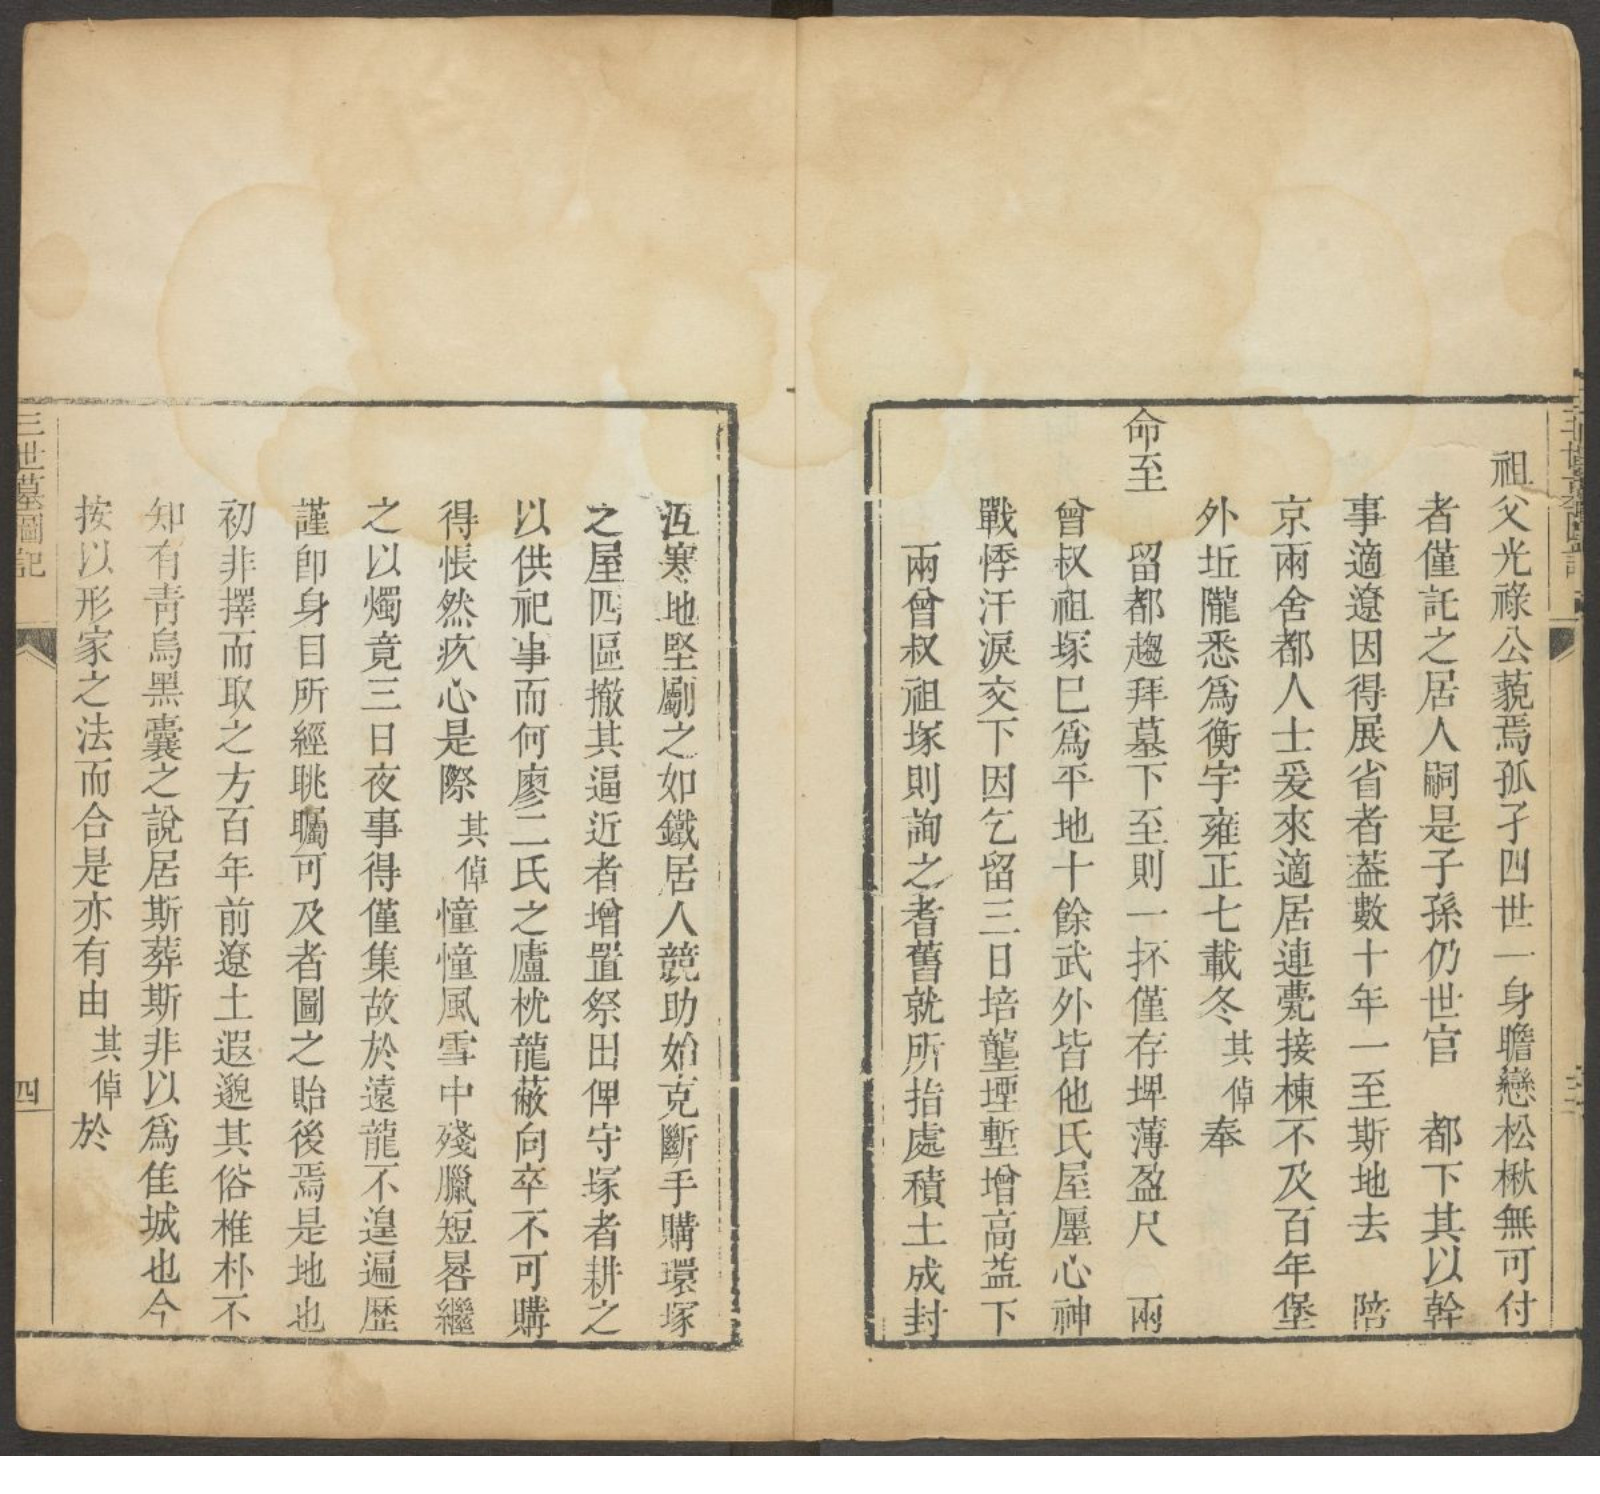 三世墓圖記
三
祖父光祿公藐焉孤孑四世一身瞻戀松楸無可付
者僅託之居人嗣是子孫仍世官　都下其以幹
事適遼因得展省者葢數十年一至斯地去　陪
京兩舍都人士爰來適居連甍接棟不及百年堡
外坵隴悉爲衡宇雍正七載冬其倬奉
命至　留都趨拜墓下至則一抔僅存埤薄盈尺　兩
曾叔祖塚巳爲平地十餘武外皆他氏屋廛心神
戰悸汗淚交下因乞留三日培壟堙塹增高葢下
兩曾叔祖塚則詢之耆舊就所指處積土成封
沍寒地堅劚之如鐵居人競助始克斷手購環塚
之屋四區撤其逼近者增置祭田俾守塚者耕之
以供祀事而何廖二氏之廬枕龍蔽向卒不可購
得悵然疚心是際其倬憧憧風雪中殘臘短晷繼
之以燭竟三日夜事得僅集故於遠龍不遑遍歷
謹卽身目所經眺矚可及者圖之貽後焉是地也
初非擇而取之方百年前遼土遐邈其俗椎朴不
知有靑烏黑囊之說居斯葬斯非以爲佳城也今
按以形家之法而合是亦有由其倬於
三世墓圖記
四